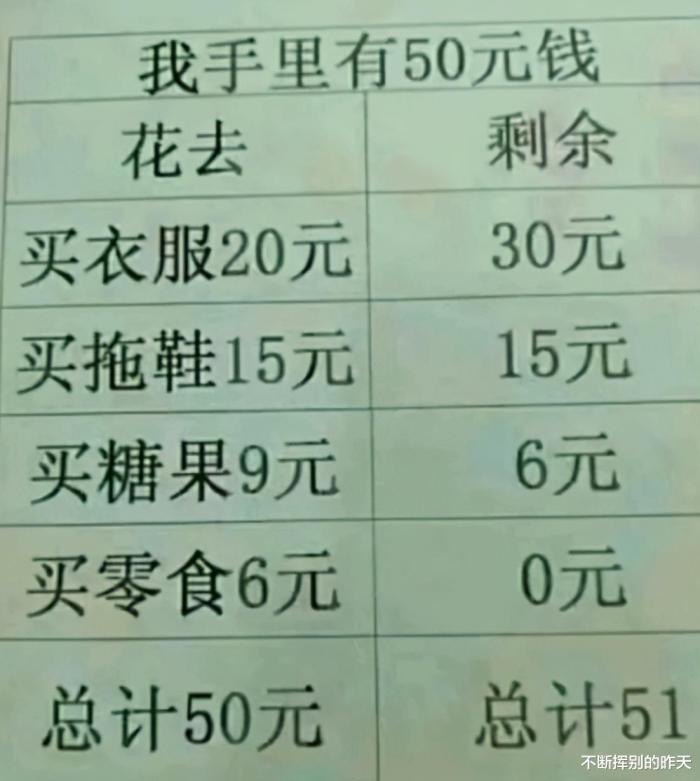 我手里有50元钱
花去 剩余
买衣服20元 30元
买拖鞋15元 15元
买糖果9元 6元
买零食6元 0元
总计50元 总计51
不断挥别的昨天